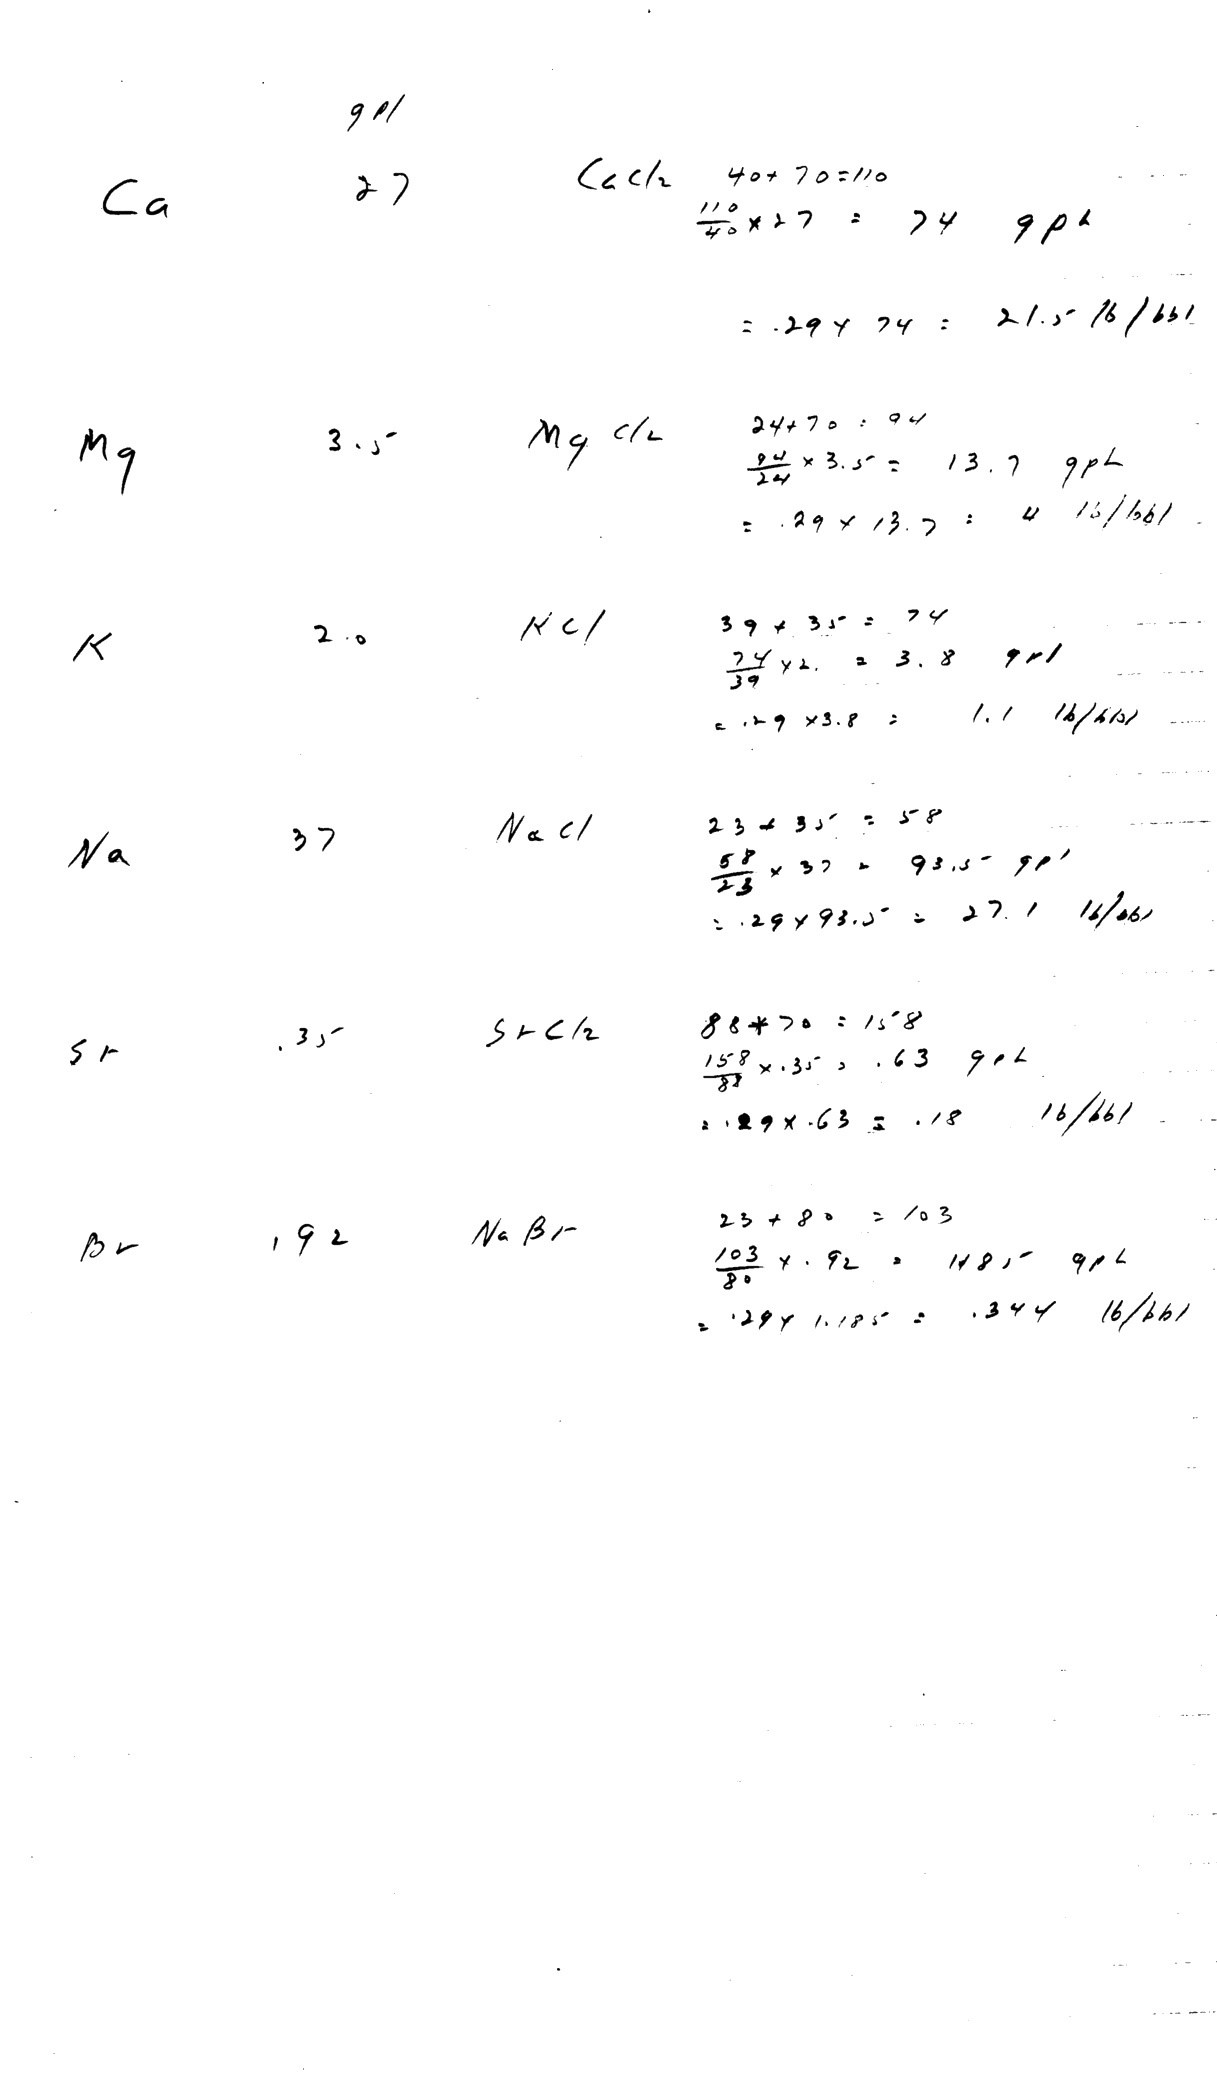 gpl
Ca 27 CaCl2 40+70=110
110/40 x 27 = 74 gpl
= .29 x 74 = 21.5 lb/bbl
Mg 3.5 MgCl2 24+70 = 94
94/24 x 3.5 = 13.7 gpL
= .29 x 13.7 = 4 lb/bbl
K 2.0 KCl 39 + 35 = 74
74/39 x 2. = 3.8 gpl
= .29 x3.8 = 1.1 lb/bbl
Na 37 NaCl 23 + 35 = 58
58/23 x 37 = 93.5 gpl
= .29 x 93.5 = 27.1 lb/bbl
Sr .35 SrCl2 88+70 = 158
158/88 x .35 = .63 gpL
= .29 x .63 = .18 lb/bbl
Br .92 NaBr 23 + 80 = 103
103/80 x .92 = 1.185 gpL
= .29 x 1.185 = .344 lb/bbl